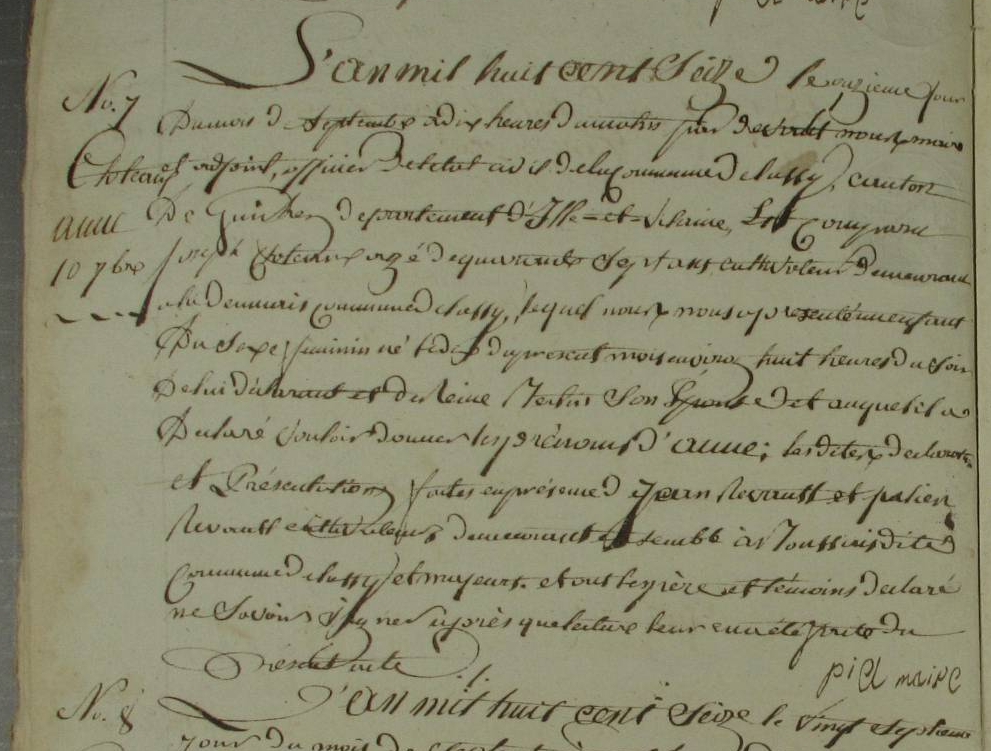 L'an mil huit cent Seize le onzieme jour
No. 7
Du mois de Septembre a dix heures du matin par devant nous maire
et adjoint, officier de l'etat civil de la Commune de lassy, canton
anne
De Guichen departement d'Ille-et-Vilaine, Est Comparu
10 7bre
joseph agé de quarante Sept ans cultivateur demeurant
Commune de lassy, lequel nous a présenté un enfant
Du Sexe feminin né le dix du present mois environ huit heures du Soir
De lui déclarant et de Reine Son Epouse et auquel il a
Declaré Vouloir donner les prénoms d'anne; les dites declaration
et Présentation faites en présence de jean Revault et
Revault cultivateurs demeurant Ensemble dite
Commune de lassy et majeurs. et ont les père et témoins declaré
ne Savoir Signer après que lecture leur en a été faite du
Présent acte ./.
piel maire
No. 8
L'an mil huit cent Seize le Vingt Septieme
jour du mois de Septembre